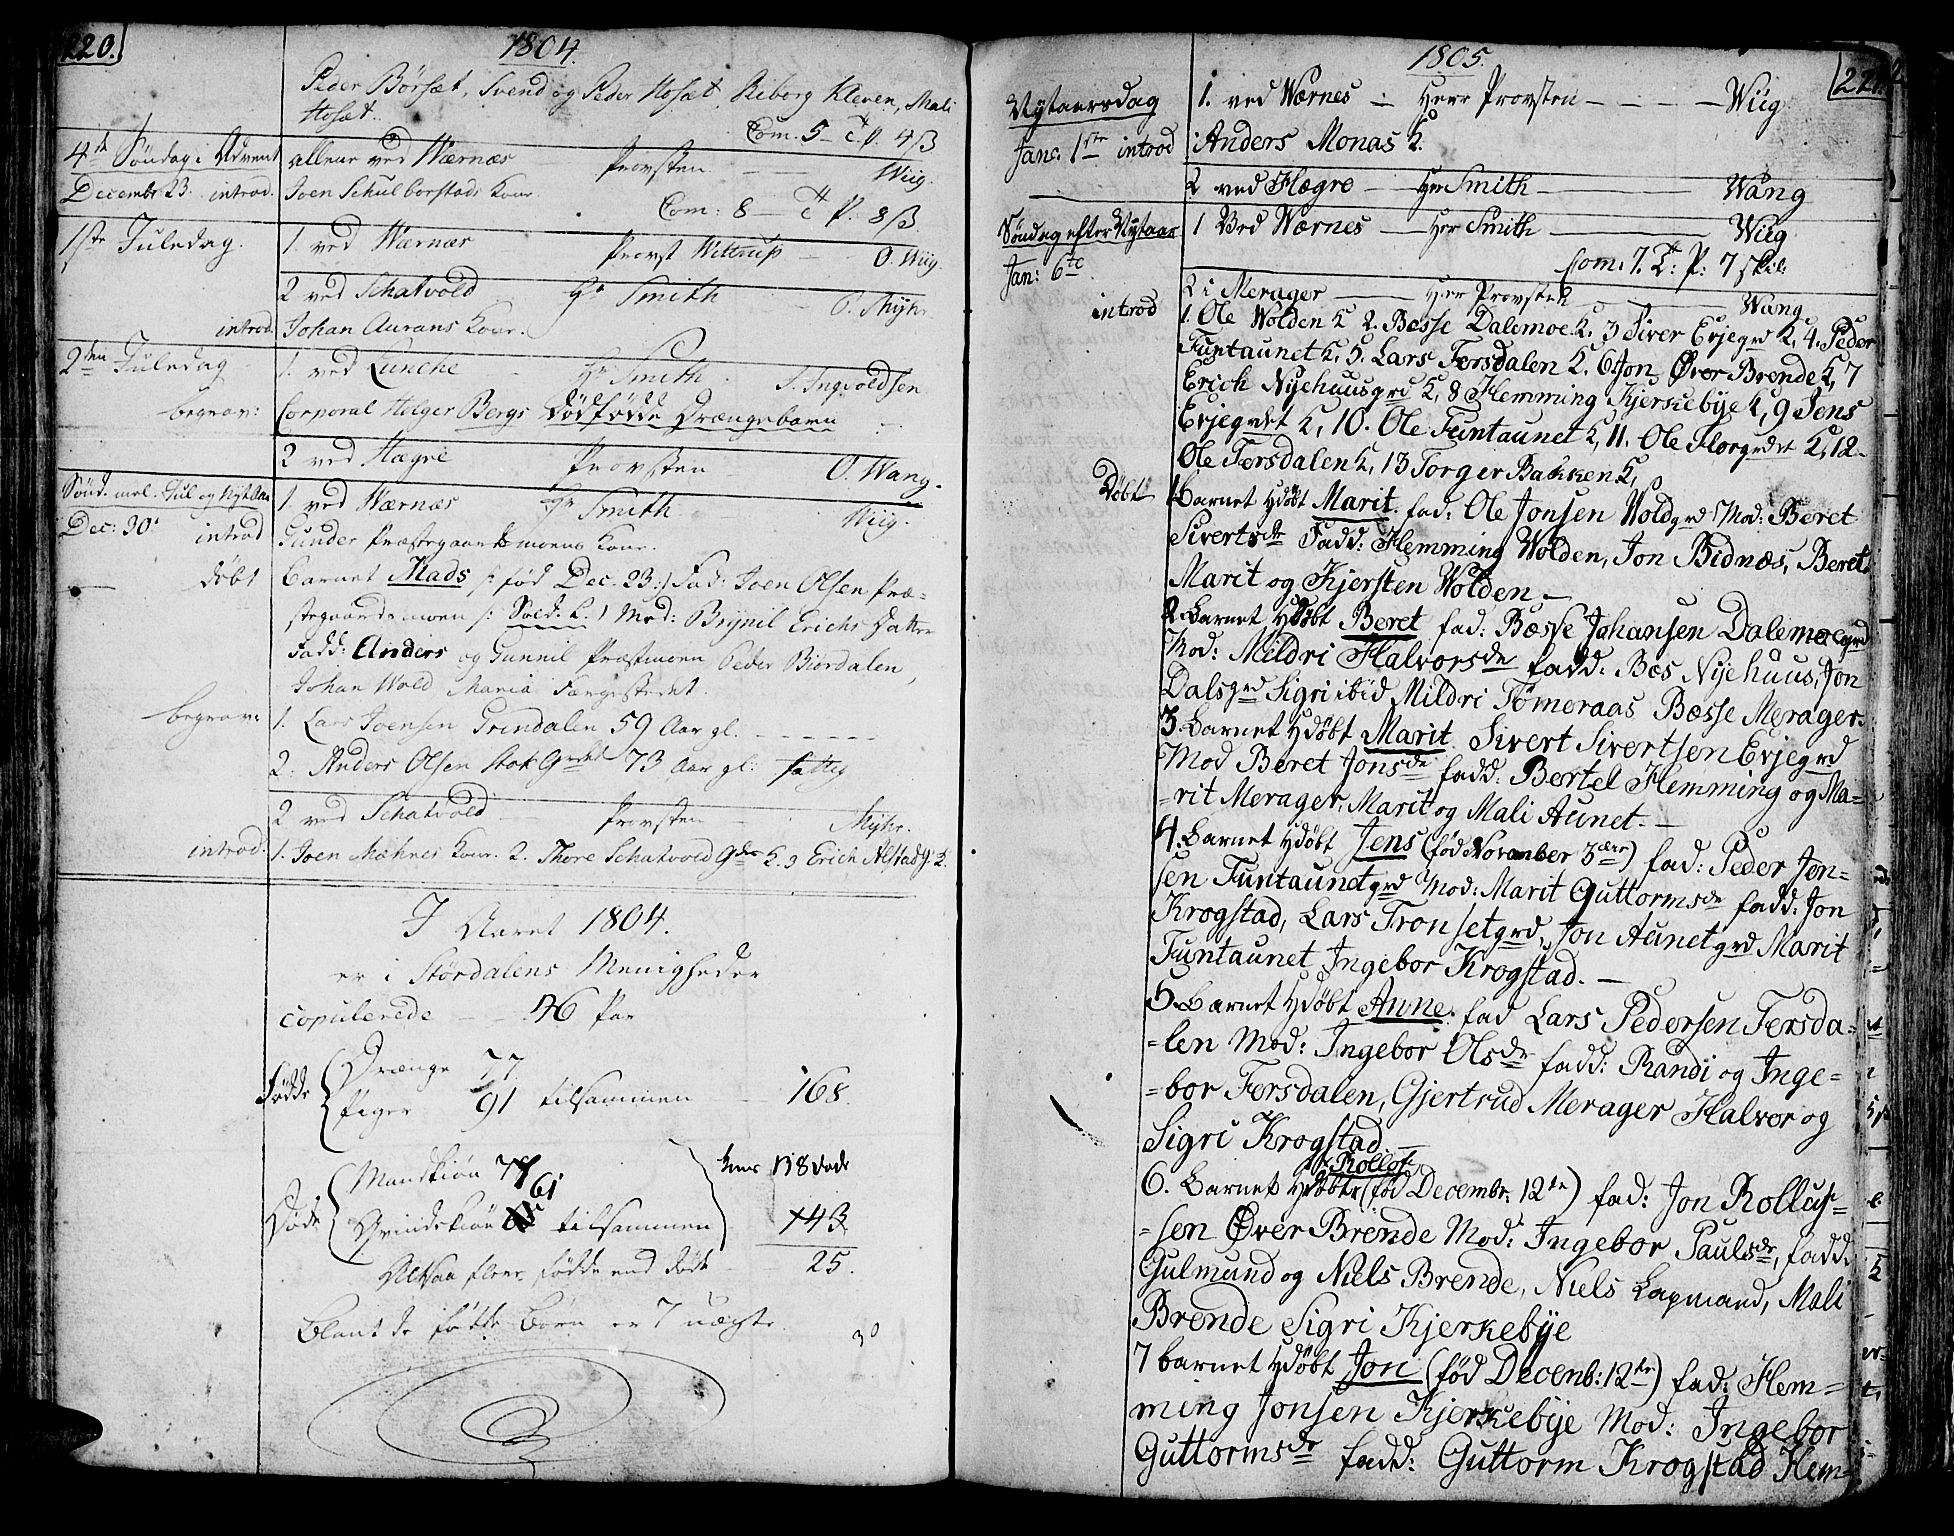 220.
1804.
Peder Børset, Svend og Peder Hosæt, Riborg Kleven, Mali
Hosæt.
Com. 5 - T.P. 4 ß
4de Søndag i Advent allene ved Wærnæs Provsten Wiig.
Decembr 23. introd. Joen Schulborstads Kone
Com: 8 - T. P. 8 ß
1ste Juledag. 1. ved Wærnæs Provst Wittrup O. Wiig.
2 ved Schatvold Hr Smith O. Myhr.
introd. Johan Aurans Kone.
2den Juledag 1. ved Lunche Hr Smith J. Ingvoldsen
begrav: Corporal Helger Bergs dødfødde Drængebarn
2 ved Hægre Provsten O. Wang.
Sønd. mel. Jul og Nytaar 1 ved Wærnæs Hr Smith Wiig.
Dec: 30 introd Gunder Præstegaardsmoens Kone.
døbt Barnet Mads /: fød Dec. 23:/ Fad: Joen Olsen Præ-
stegaardsmoen /: Sold. L. / Mod: Brynil Erichs Datter
Fadd: Anders og Gunnil Præstmoen Peder Biørdalen,
Johan Wold Maria Færgestedet.
begrav: 1. Lars Joensen Grindalen 59 Aar gl.
2. Anders Olsen Stok Grdet 73 Aar gl: fattig
2 ved Schatvold Provsten Myhr.
introd. 1. Joen Mæhnes Kone. 2. Thore Schatvold Gdes K. 3 Erich Alstad G. K.
I Aaret 1804.
er i Størdalens Menigheder
copulerede 46 Par
Fødde Drænge 77
Piger 91 tilsammen 168.
Mandkiøn 77 138 døde
Døde Qvindekiøn 61 tilsammen 143
Altsaa fleere fødde end døde 25.
30
Blant de fødde Børn er 7 uægte.
1805.
221.
Nytaarsdag 1. ved Wærnes Herr Provsten Wiig
Janr. 1ste introd Anders Monas K.
2 ved Hægre Hr Smith Wang
Søndag efter Nytaar 1 Ved Wærnes Hr Smith Wiig
Jan: 6te Com: 7. T: P: 7 skil:
2 i Merager Herr Provsten Wang
introd 1. Ole Wolden K 2. Besse Dalemoe K. 3 Siver Evjegrd K, 4. Peder
Funtaunet K, 5. Lars Fersdalen K. 6 Jon Øver Brende K, 7
Erich Nyehuusgrd K, 8 Flemming Kjerkebye K, 9 Jens
Evjegrdet K, 10. Ole Funtaunet K, 11. Ole Florgrdet K, 12
Ole Fersdalen K, 13 Torger Bakken K,
Døbt 1 Barnet hdøbt Marit. fad: Ole Jonsen Woldgrd Mod: Beret
Sivertsdr Fadd: Hemming Wolden, Jon Bidnæs, Beret
Marit og Kjersten Wolden -
2 Barnet Hdøbt Beret fad: Bæsse Johansen Dalemoegrd
Mod: Mildri Halvorsdr fadd. Bæs Nyehuus, Jon
Dalsgrd Sigri ibid Mildri Tømeraas Bæsse Merager.
3. Barnet hdøbt Marit Sivert Sivertsen Evjegrd
Mod Beret Jonsdr fadd: Bertel Hemming og Ma=
=rit Merager, Marit og Mali Aunet. -
4. Barnet hdøbt Jens (fød November 3die) fad: Peder Jon=
sen Funtaunetgrd Mod: Marit Guttormsdr fadd: Jon
Krogstad, Lars Tronsetgrd, Jon Aunetgrd Marit
Funtaunet Ingebor Krogstad. -
5. Barnet hdøbt Anne. fad Lars Pedersen Fersda=
=len Mod: Ingebor Olsdr fadd: Randi og Inge=
=bor Fersdalen, Gjertrud Merager Halvor og
Sigri Krogstad -
Rollof
6. Barnet hdøbt (fød Decembr. 12te) fad: Jon Rollof=
=sen Øver Brende Mod: Ingebor Paulsdr, fadd:
Gulmund og Niels Brende, Niels Lapmand, Mali
Brende Sigri Kjerkebye
7 barnet hdøbt Jon (fød Decemb: 12te) fad: Hem=
ming Jonsen Kjerkebye Mod: Ingebor
Guttormsdr fadd: Guttorm Krogstad Hem=